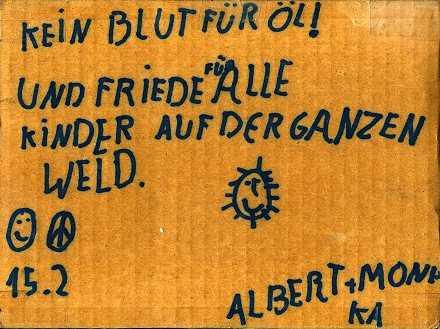 KEIN BLUT FÜR ÖL!
UND FRIEDE FÜR ALLE
KINDER AUF DER GANZEN
WELD.
15.2
ALBERT+MONI
KA